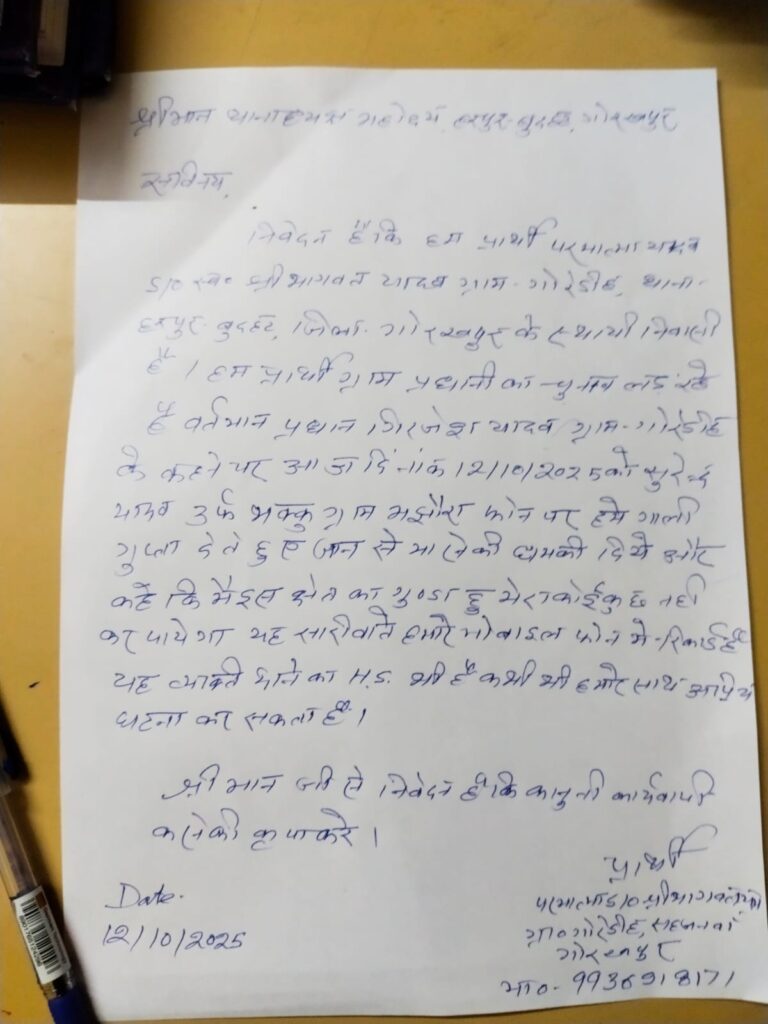 श्रीमान थानाध्यक्ष महोदय, हरपुर-बुदहट, गोरखपुर
सविनय,
निवेदन है कि हम प्रार्थी परमात्मा यादव
S/O स्व० श्री भागवत यादव ग्राम-गोरेडीह, थाना-
हरपुर-बुदहट, जिला-गोरखपुर के स्थायी निवासी
हैं। हम प्रार्थी ग्राम प्रधानी का चुनाव लड़ रहे
हैं वर्तमान प्रधान गिरजेश यादव ग्राम-गोरेडीह
के कहने पर आज दिनांक 12/10/2025 को सुरेन्द्र
यादव उर्फ भक्कु ग्राम मझौरा फोन पर हमे गाली
गुप्ता देते हुए जान से मारने की धमकी दिये और
कहे कि मै इस क्षेत्र का गुण्डा हु मेरा कोई कुछ नही
कर पायेगा यह सारी बाते हमारे मोबाइल फोन मे रिकार्ड है
यह व्यक्ति थाने का H.S. भी है कभी भी हमारे साथ अप्रिय
घटना कर सकता है।
श्रीमान जी से निवेदन है कि कानुनी कार्यवाही
करने की कृपा करे।
प्रार्थी
Date.
12/10/2025
परमात्मा S/O श्री भागवत
ग्रा० गोरेडीह, सहजनवां
गोरखपुर
मो०- 9936918171